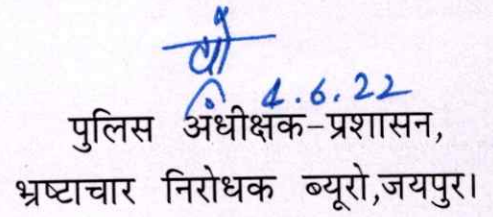 4.6.22
पुलिस अधीक्षक-प्रशासन,
भ्रष्टाचार निरोधक ब्यूरो,जयपुर।